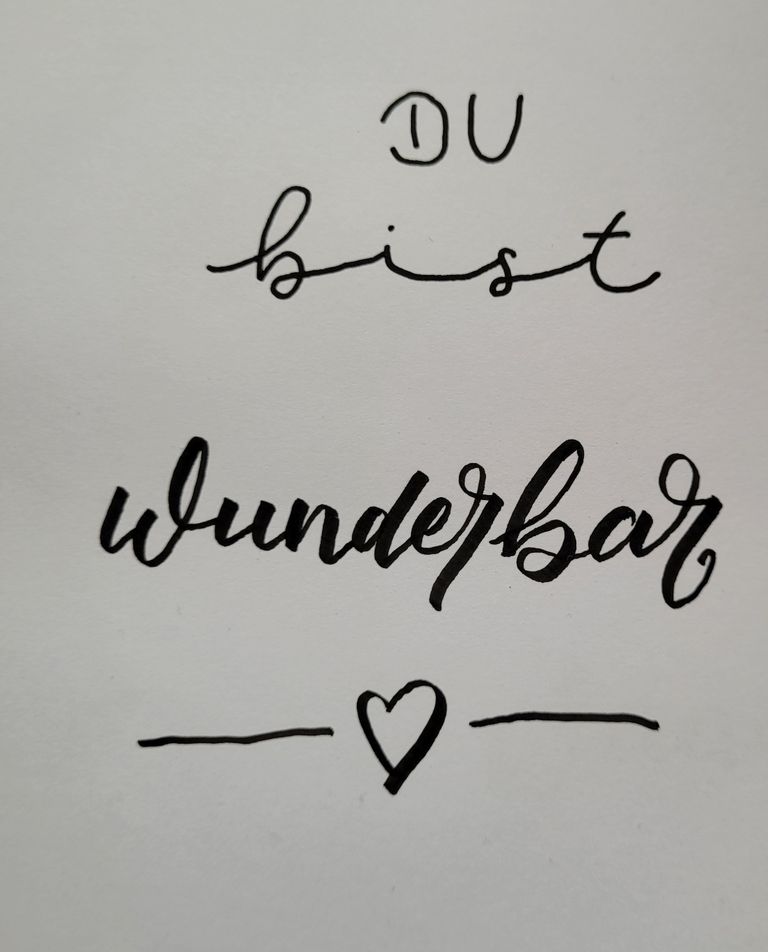 DU
bist
wunderbar